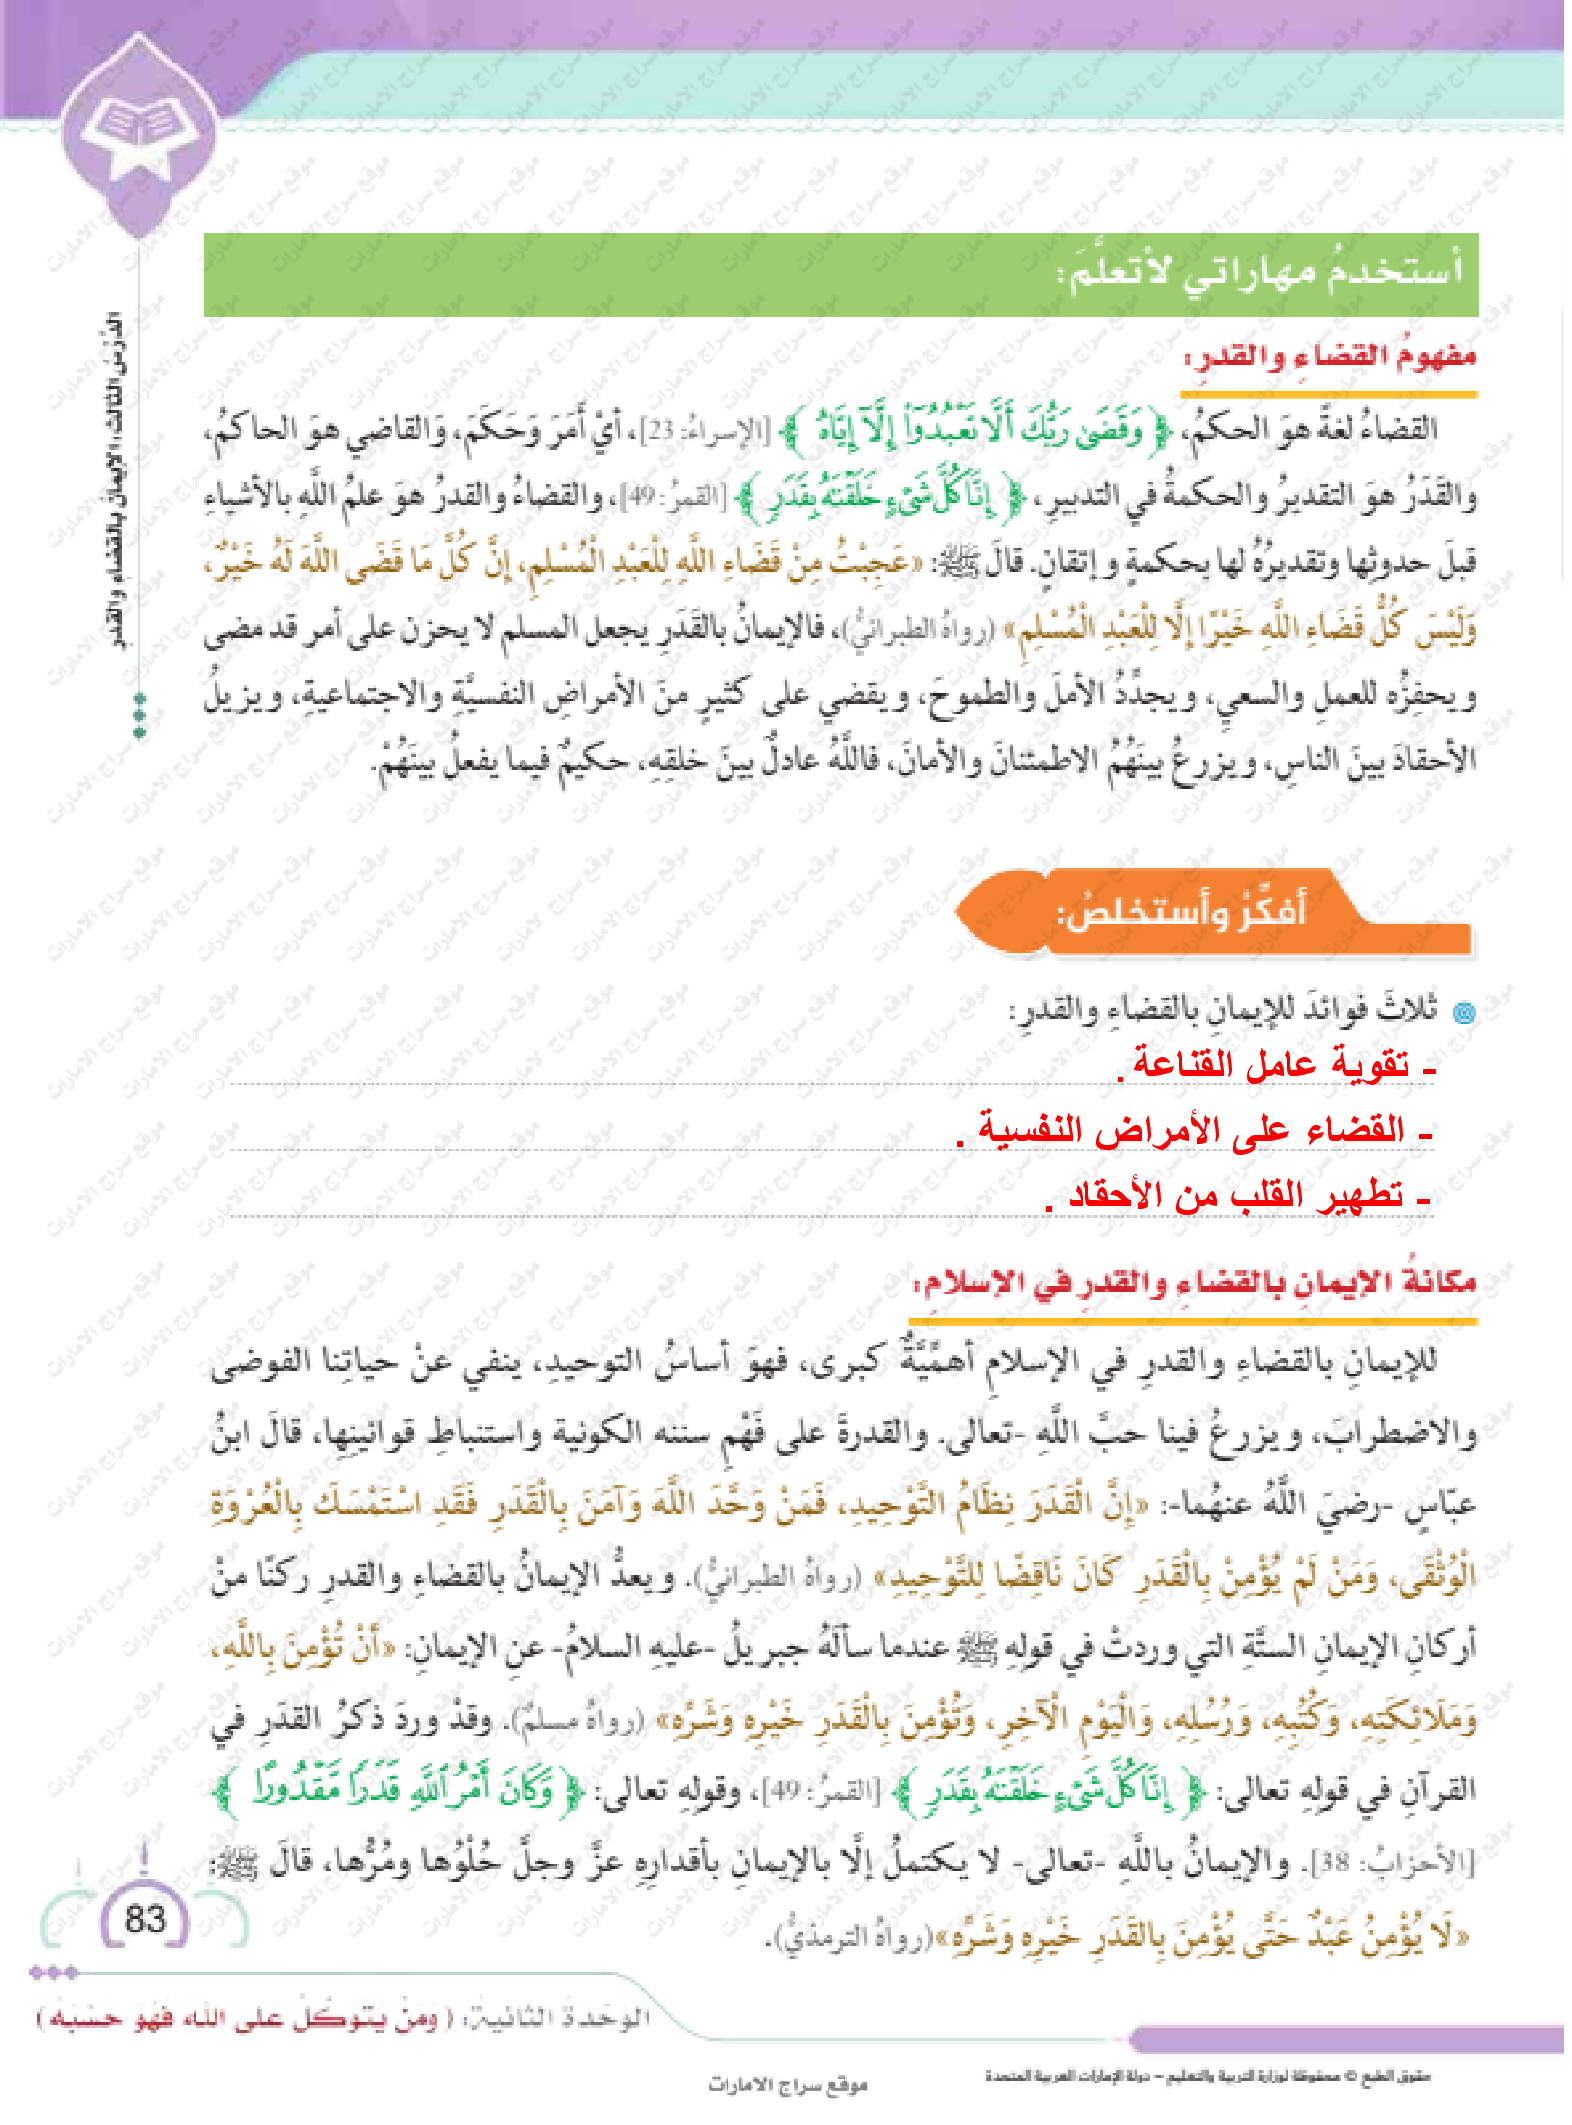 أستخدمُ مهاراتي لأتعلَّمَ:
مفهومُ القضاءِ والقدرِ:
القضاءُ لغةً هوَ الحكمُ، ﴿ وَقَضَىٰ رَبُّكَ أَلَّا تَعْبُدُوٓا۟ إِلَّآ إِيَّاهُ ﴾ [الإسراءُ: 23]، أيْ أَمَرَ وَحَكَمَ، وَالقاضي هوَ الحاكمُ،
والقَدَرُ هوَ التقديرُ والحكمةُ في التدبيرِ، ﴿ إِنَّا كُلَّ شَىْءٍ خَلَقْنَٰهُ بِقَدَرٍ ﴾ [القمرُ: 49]، والقضاءُ والقدرُ هوَ علمُ اللَّهِ بالأشياءِ
قبلَ حدوثِها وتقديرُهُ لها بحكمةٍ وإتقانٍ. قالَ ﷺ: «عَجِبْتُ مِنْ قَضَاءِ اللَّهِ لِلْعَبْدِ الْمُسْلِمِ، إِنَّ كُلَّ مَا قَضَى اللَّهُ لَهُ خَيْرٌ،
وَلَيْسَ كُلُّ قَضَاءِ اللَّهِ خَيْرًا إِلَّا لِلْعَبْدِ الْمُسْلِمِ» (رواهُ الطبرانيُّ)، فالإيمانُ بالقَدَرِ يجعل المسلم لا يحزن على أمر قد مضى
ويحفِزُه للعملِ والسعيِ، ويجدِّدُ الأملَ والطموحَ، ويقضي على كثيرٍ منَ الأمراضِ النفسيَّةِ والاجتماعيةِ، ويزيلُ
الأحقادَ بينَ الناسِ، ويزرعُ بينَهُمُ الاطمئنانَ والأمانَ، فاللَّهُ عادلٌ بينَ خلقِهِ، حكيمٌ فيما يفعلُ بينَهُمْ.
أفكِّرُ وأستخلصُ:
ثلاثَ فوائدَ للإيمانِ بالقضاءِ والقدرِ:
- تقوية عامل القناعة .
- القضاء على الأمراض النفسية .
- تطهير القلب من الأحقاد .
مكانةُ الإيمانِ بالقضاءِ والقدرِ في الإسلامِ:
للإيمانِ بالقضاءِ والقدرِ في الإسلامِ أهمِّيَّةٌ كبرى، فهوَ أساسُ التوحيدِ، ينفي عنْ حياتِنا الفوضى
والاضطرابَ، ويزرعُ فينا حبَّ اللَّهِ -تعالى. والقدرةَ على فَهْمِ سننه الكونية واستنباطِ قوانينِها، قالَ ابنُ
عبّاسٍ -رضيَ اللَّهُ عنهُما-: «إِنَّ الْقَدَرَ نِظَامُ التَّوْحِيدِ، فَمَنْ وَحَّدَ اللَّهَ وَآمَنَ بِالْقَدَرِ فَقَدِ اسْتَمْسَكَ بِالْعُرْوَةِ
الْوُثْقَى، وَمَنْ لَمْ يُؤْمِنْ بِالْقَدَرِ كَانَ نَاقِضًا لِلتَّوْحِيدِ» (رواهُ الطبرانيُّ). ويعدُّ الإيمانُ بالقضاءِ والقدرِ ركنًا منْ
أركانِ الإيمانِ الستَّةِ التي وردتْ في قولِهِ ﷺ عندما سألَهُ جبريلُ -عليهِ السلامُ- عنِ الإيمانِ: «أَنْ تُؤْمِنَ بِاللَّهِ،
وَمَلَائِكَتِهِ، وَكُتُبِهِ، وَرُسُلِهِ، وَالْيَوْمِ الْآخِرِ، وَتُؤْمِنَ بِالْقَدَرِ خَيْرِهِ وَشَرِّهِ» (رواهُ مسلمٌ). وقدْ وردَ ذكرُ القدَرِ في
القرآنِ في قولِهِ تعالى: ﴿ إِنَّا كُلَّ شَىْءٍ خَلَقْنَٰهُ بِقَدَرٍ ﴾ [القمرُ: 49]، وقولِهِ تعالى: ﴿ وَكَانَ أَمْرُ ٱللَّهِ قَدَرًا مَّقْدُورًا ﴾
[الأحزابُ: 38]. والإيمانُ باللَّهِ -تعالى- لا يكتملُ إلَّا بالإيمانِ بأقدارِهِ عزَّ وجلَّ حُلْوُها ومُرُّها، قالَ ﷺ:
«لَا يُؤْمِنُ عَبْدٌ حَتَّى يُؤْمِنَ بِالقَدَرِ خَيْرِهِ وَشَرِّهِ»(رواهُ الترمذيُّ).
الدَّرْسُ الثالث: الإيمانُ بالقضاءِ والقدرِ
83
الوحدةُ الثانيةُ: (ومنْ يتوكلْ على الله فهُو حسْبُهُ)
حقوق الطبع © محفوظة لوزارة التربية والتعليم – دولة الإمارات العربية المتحدة
موقع سراج الامارات